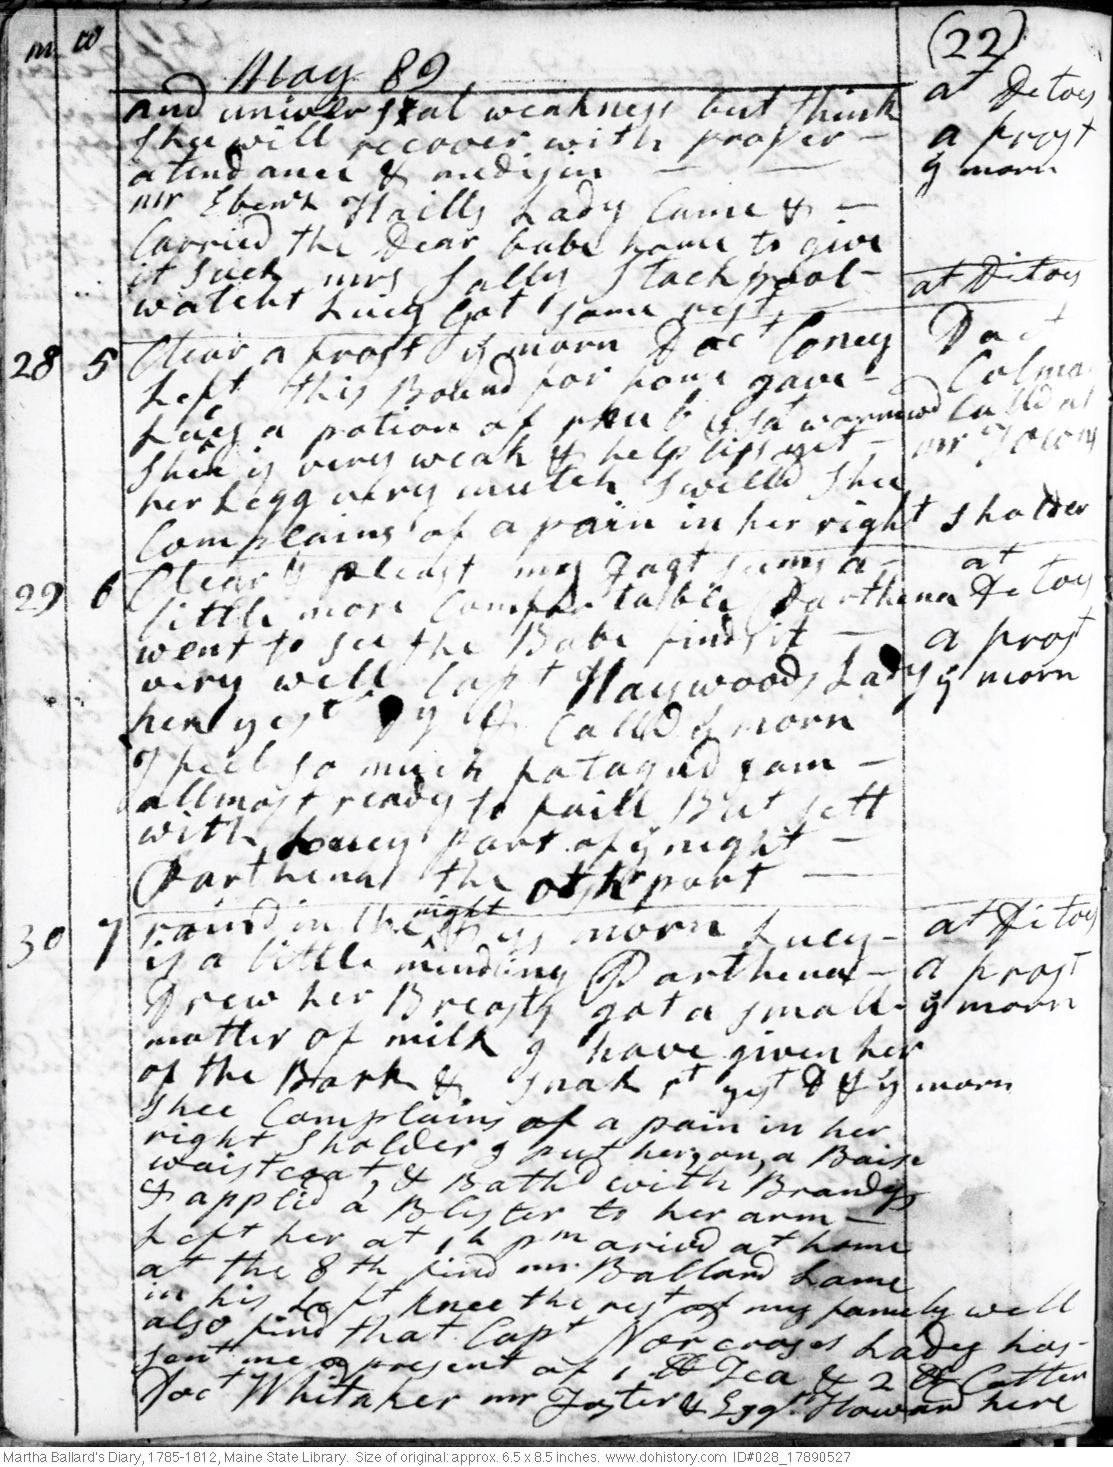 m w
May 89
(22)
and universal weakness but think
at Ditoes
shee will recover with proper
a frost
atendance & medisin
y morn
mr Ebenr Haills Lady Came &
Carried the Dear babe home to give
it Suck mrs Sally Stackpool
at Ditoes
watcht Lucy Got some rest
28 5 Clear a frost y morn Doct Coney
Doct
Left this Bound for home gave
Colman
Lucy a potion of rhub
Calld at
shee is very weak & helpless yet
mr Towns
her Legg very mutch swelld shee
Complains of a pain in her right sholder
29 6 Clear & pleast my seems a
at
little more Comfortable Parthena
Ditoes
went to see the Babe finds it
a frost
very well Capt Haywoods Lady
y morn
her yest & Calld y morn
I feel so much fatagud I am
allmost ready to faill But sett
with Lucy part of y night
Parthena the other part
30 7 raind in the night & y morn Lucy
at Ditoes
is a little minding Parthena
a frost
Drew her Breasts got a small
y morn
matter of milk I have given her
of the Bark & Snak rt yst D & y morn
shee Complains of a pain in her
right sholder I put her on a Baise
waistcoat & Bathd with Brandy
& applid a Blister to her arm
Left her at 1 h pm arivd at home
at the 8th find mr Ballard Lame
in his Left Knee the rest of my famely well
also find that Capt Norcrosses Lady has
sent me a present of 1 lb Tea & 2 lb Cotten
Doct Whitaker mr Foster & Esqr Howard here
Martha Ballard's Diary, 1785-1812, Maine State Library. Size of original: approx. 6.5 x 8.5 inches. www.dohistory.com ID#028_17890527